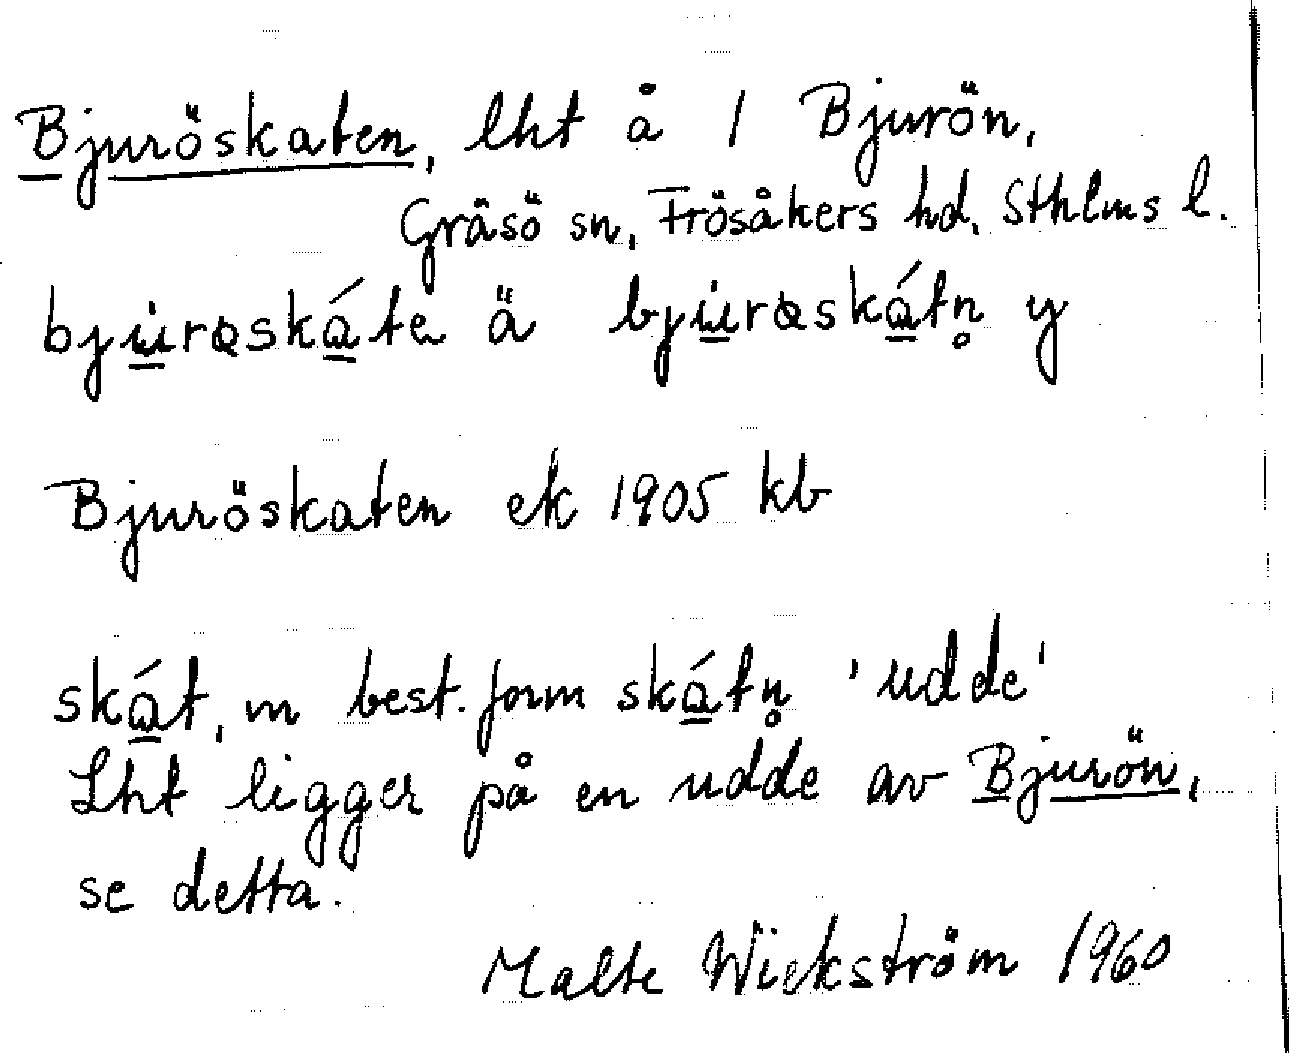 Bjuröskaten, lht å 1 Bjurön,
Gräsö sn, Frösåkers hd, Sthlms l.
bju̲̇rəská̲te ä bju̲̇rəská̲tn̥ y
Bjuröskaten ek 1905 kb
ská̲t, m best. form ská̲tn̥ 'udde'
Lht ligger på en udde av Bjurön,
se detta.
Malte Wickström 1960